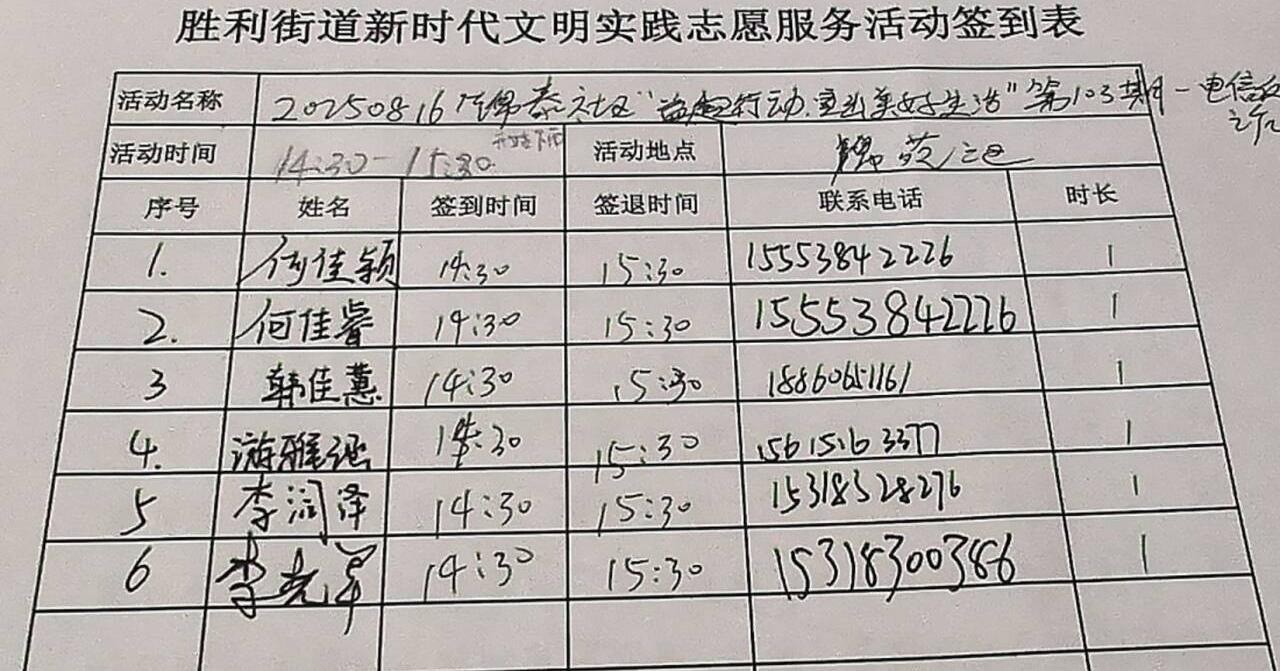 胜利街道新时代文明实践志愿服务活动签到表
活动名称 20250816 锦泰社区"益起行动.重出美好生活"第103期-电信反诈
活动时间 14:30-15:30 活动地点 锦苑
序号 姓名 签到时间 签退时间 联系电话 时长
1. 何佳颖 14:30 15:30 15553842226 1
2. 何佳睿 14:30 15:30 15553842226 1
3 韩佳蕙 14:30 15:30 18860651161 1
4. 雅涵 14:30 15:30 15615163377 1
5 李润泽 14:30 15:30 15318328276 1
6 李光军 14:30 15:30 15318300386 1